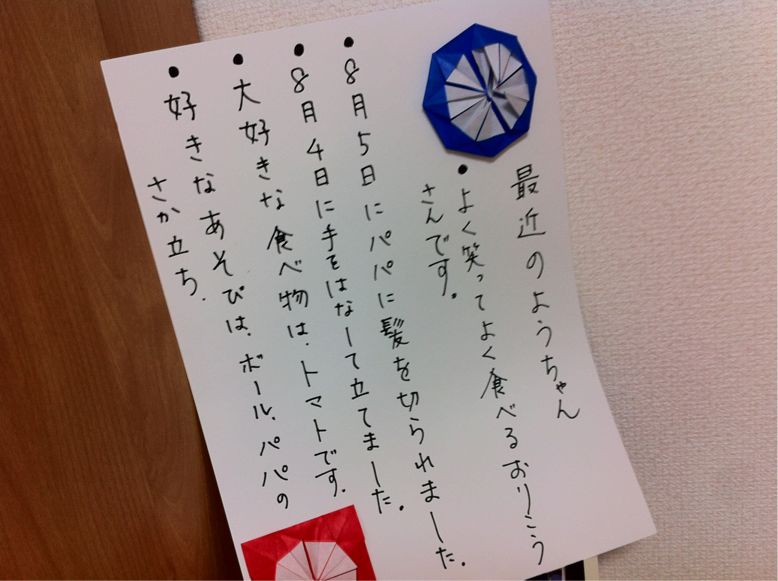 最近のようちゃん
・よく笑ってよく食べるおりこう
さんです。
・8月5日にパパに髪を切られました。
・8月4日に手をはなして立てました。
・大好きな食べ物は、トマトです。
・好きなあそびは、ボール、パパの
さか立ち、